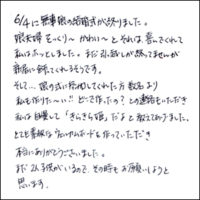 6/4に無事娘の結婚式が終りました。
娘夫婦そっくり〜かわい〜ととても喜んでくれて
私はホッとしました。まだ引っ越しが終ってませんが
新居に飾ってくれるそうです。
そして… 娘の式に参列してくれた方 数名より
私も作りた〜い!! どこで作ったの?との連絡もいただき
私は自慢して「きらきら娘」だよと教えてあげました。
とても素敵なウェルカムボードを作っていただき
本当にありがとうございました。
まだ2人子供がいるので、その時もお願いしようと
思います。